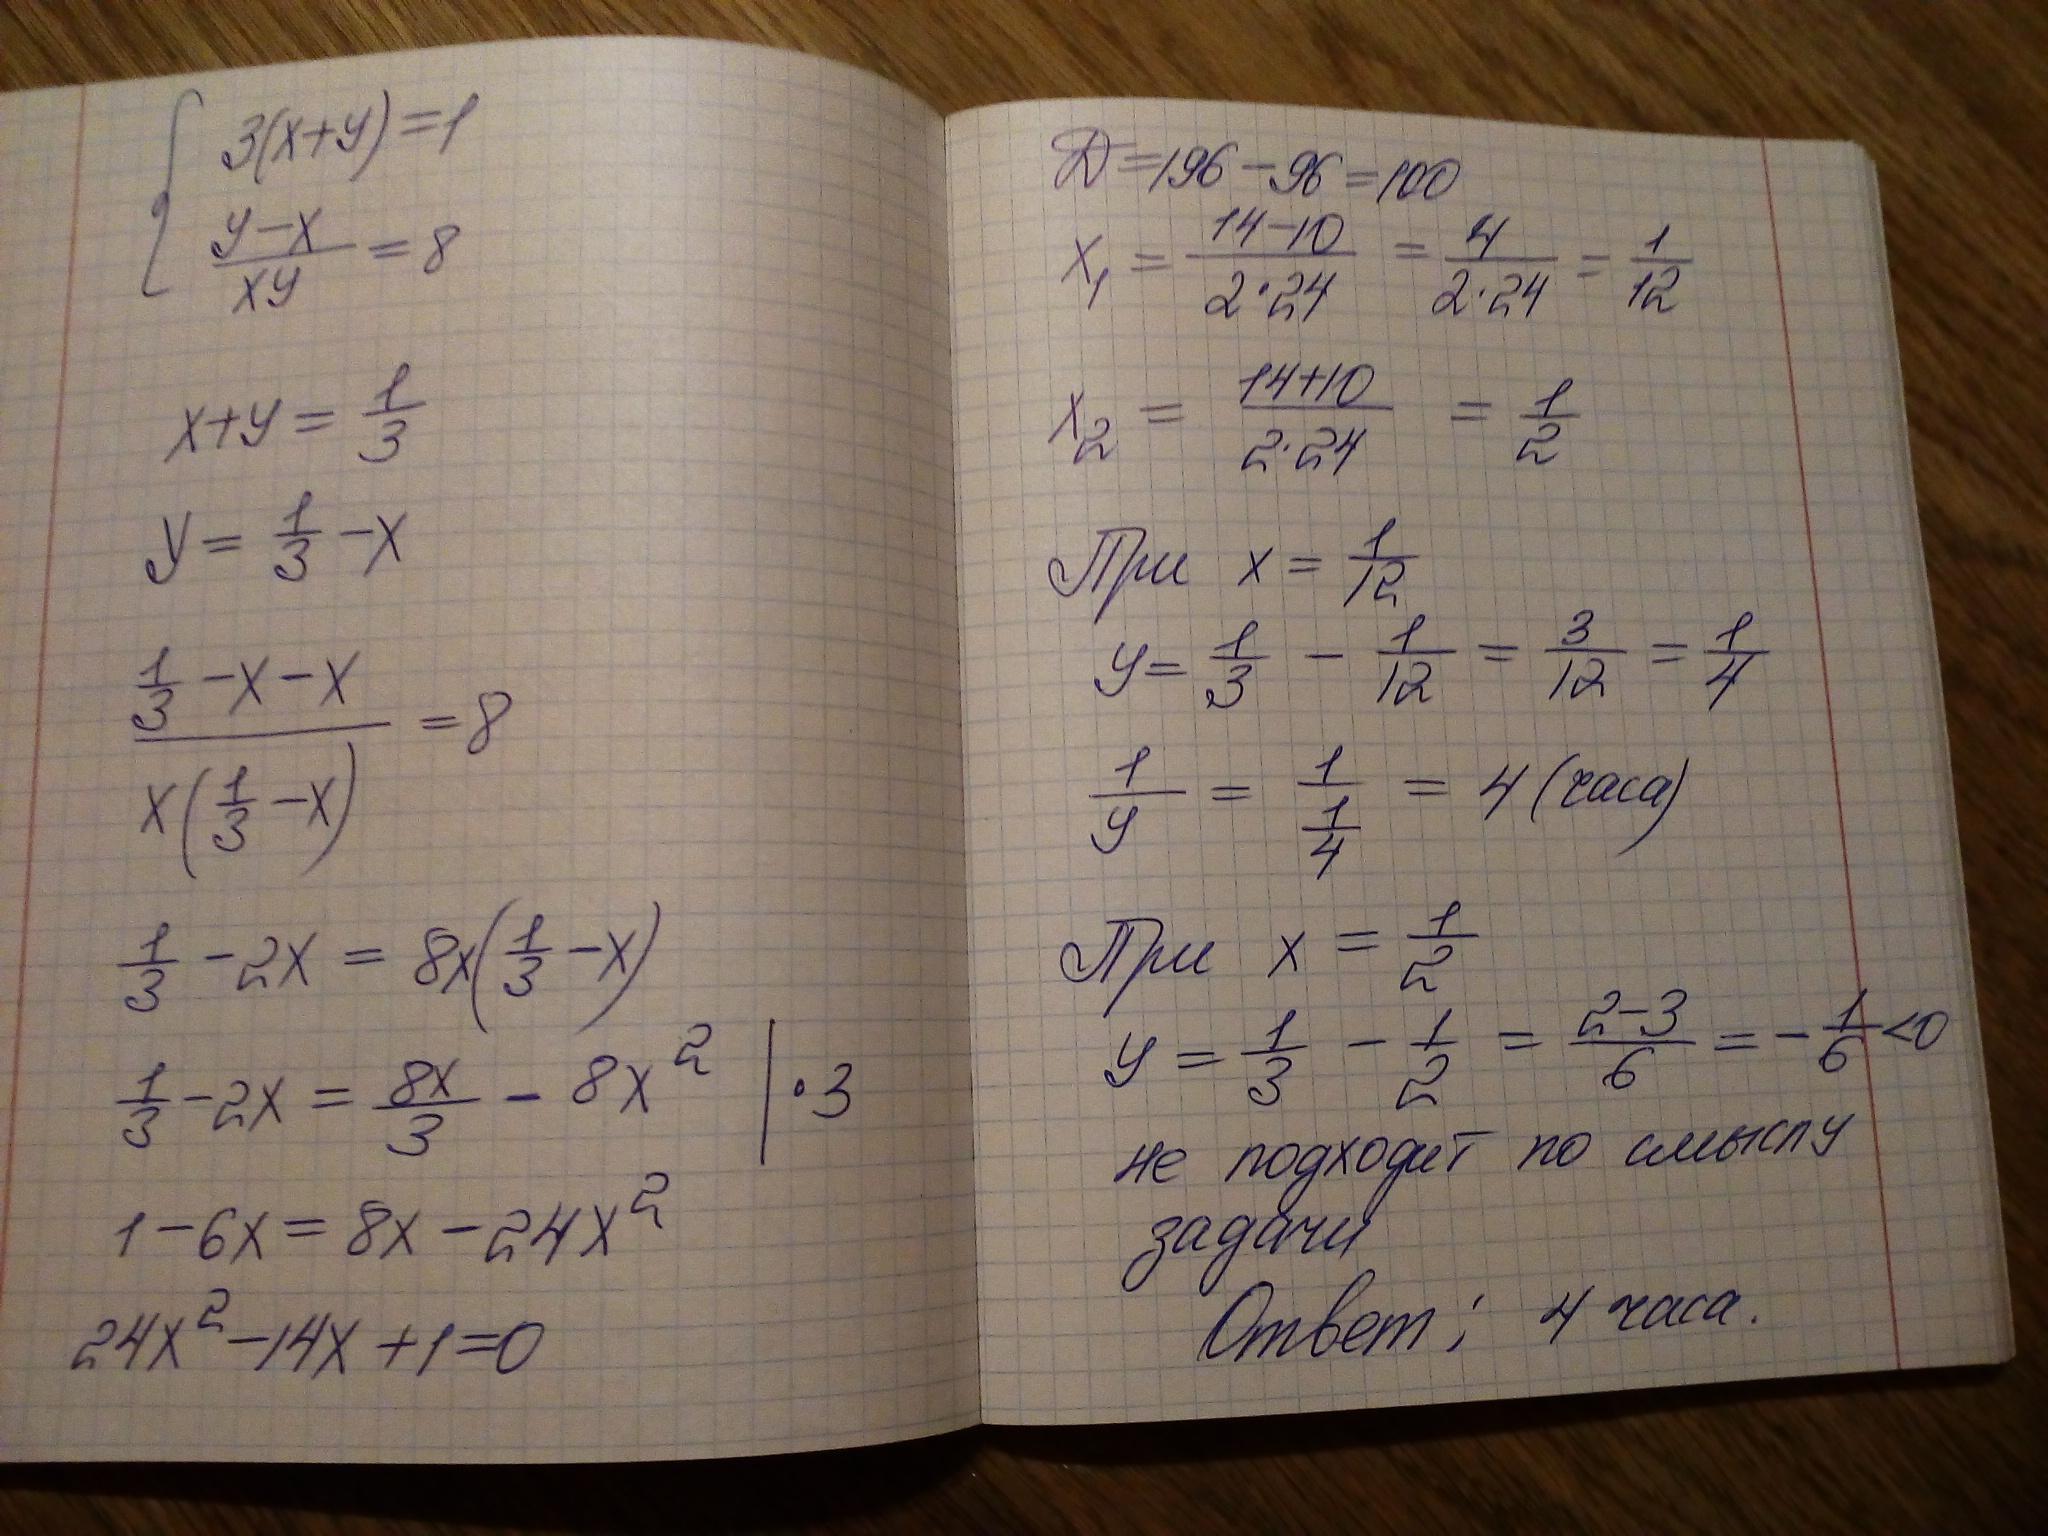 { 3(x+y)=1
(y-x)/(xy) = 8
x+y = 1/3
y = 1/3 - x
(1/3 - x - x)/(x(1/3 - x)) = 8
1/3 - 2x = 8x(1/3 - x)
1/3 - 2x = 8x/3 - 8x² | ·3
1-6x = 8x - 24x²
24x² - 14x + 1 = 0
D = 196 - 96 = 100
x₁ = (14-10)/(2·24) = 4/(2·24) = 1/12
x₂ = (14+10)/(2·24) = 1/2
При x = 1/12
y = 1/3 - 1/12 = 3/12 = 1/4
1/y = 1/(1/4) = 4 (часа)
При x = 1/2
y = 1/3 - 1/2 = (2-3)/6 = -1/6 < 0
не подходит по смыслу
задачи
Ответ: 4 часа.